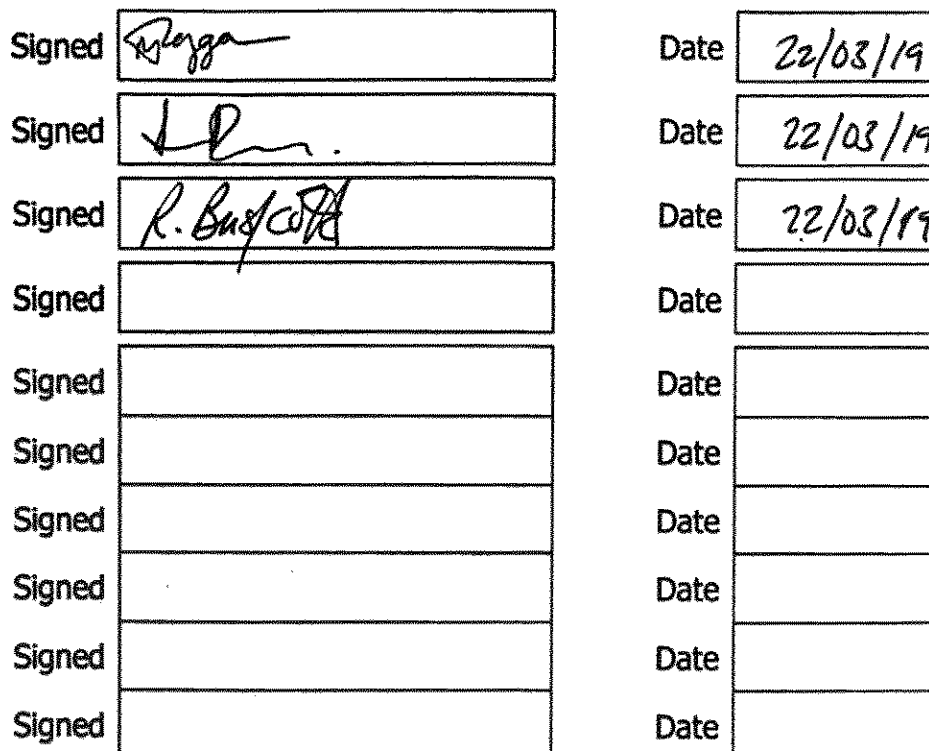 Signed Date 22/03/19
Signed Date 22/03/19
Signed R. Date 22/03/19
Signed Date
Signed Date
Signed Date
Signed Date
Signed Date
Signed Date
Signed Date